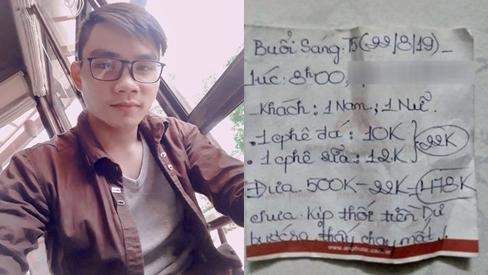 Buổi Sáng: T5 (22/8/19)_
lúc: 8h00,
_khách: 1 Nam; 1 Nữ.
• 1 cphê đá: 10K
• 1 cphê sữa: 12K } 22K
Đưa 500K-22K-478K
chưa kịp thối tiền Dư
thấy chạy mất